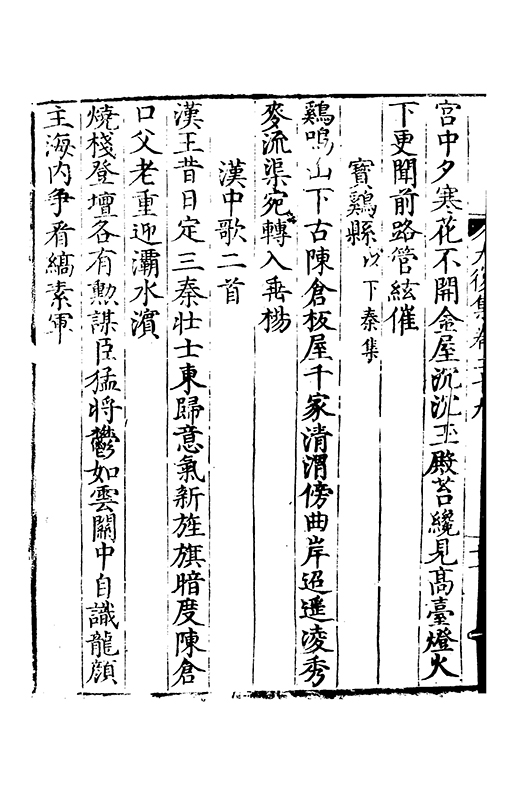 宫中夕寒花不開金屋沉沉玉殿苔纔見髙臺燈火
下更聞前路管絃催
寶鷄縣以下秦集
鷄鳴山下古陳倉板屋千家清渭傍曲岸迢遥凌秀
麥流渠宛轉入垂楊
漢中歌二首
漢王昔日定三秦壯士東歸意氣新旌旗暗度陳倉
口父老重迎灞水濱
燒棧登壇各有勲謀臣猛将鬱如雲關中自識龍顔
主海内争看縞素軍